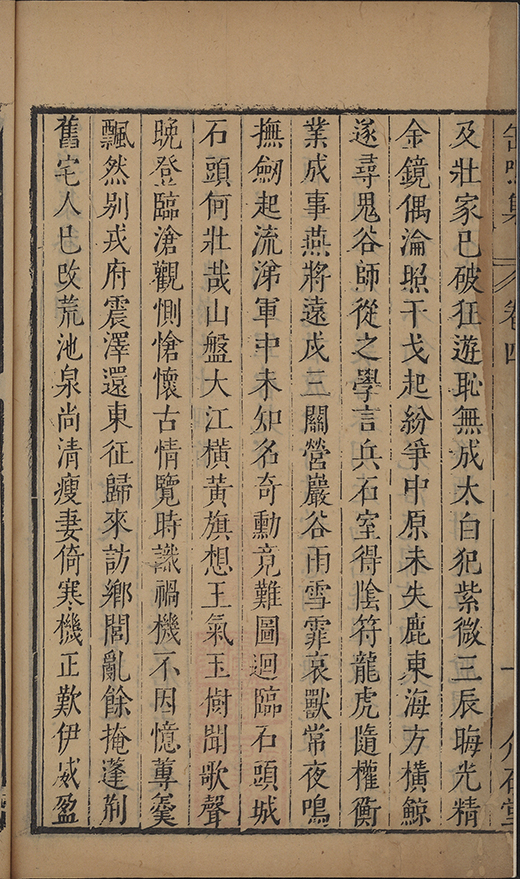 缶鳴集
卷四
及壯家已破狂遊恥無成太白犯紫微三辰晦光精
金鏡偶淪照干戈起紛爭中原未失鹿東海方橫鯨
遂尋鬼谷師從之學言兵石室得陰符龍虎隨權衡
業成事燕將遠戍三關營巖谷雨雪霏哀獸常夜鳴
撫劒起流涕軍中未知名奇勳竟難圖迴臨石頭城
石頭何壯哉山盤大江橫黃旗想王氣玉樹聞歌聲
晚登臨滄觀惻愴懷古情覽時識禍機不因憶蓴羹
飄然別戎府震澤還東征歸來訪鄉閭亂餘掩蓬荆
舊宅人已改荒池泉尚清瘦妻倚寒機正歎伊威盈